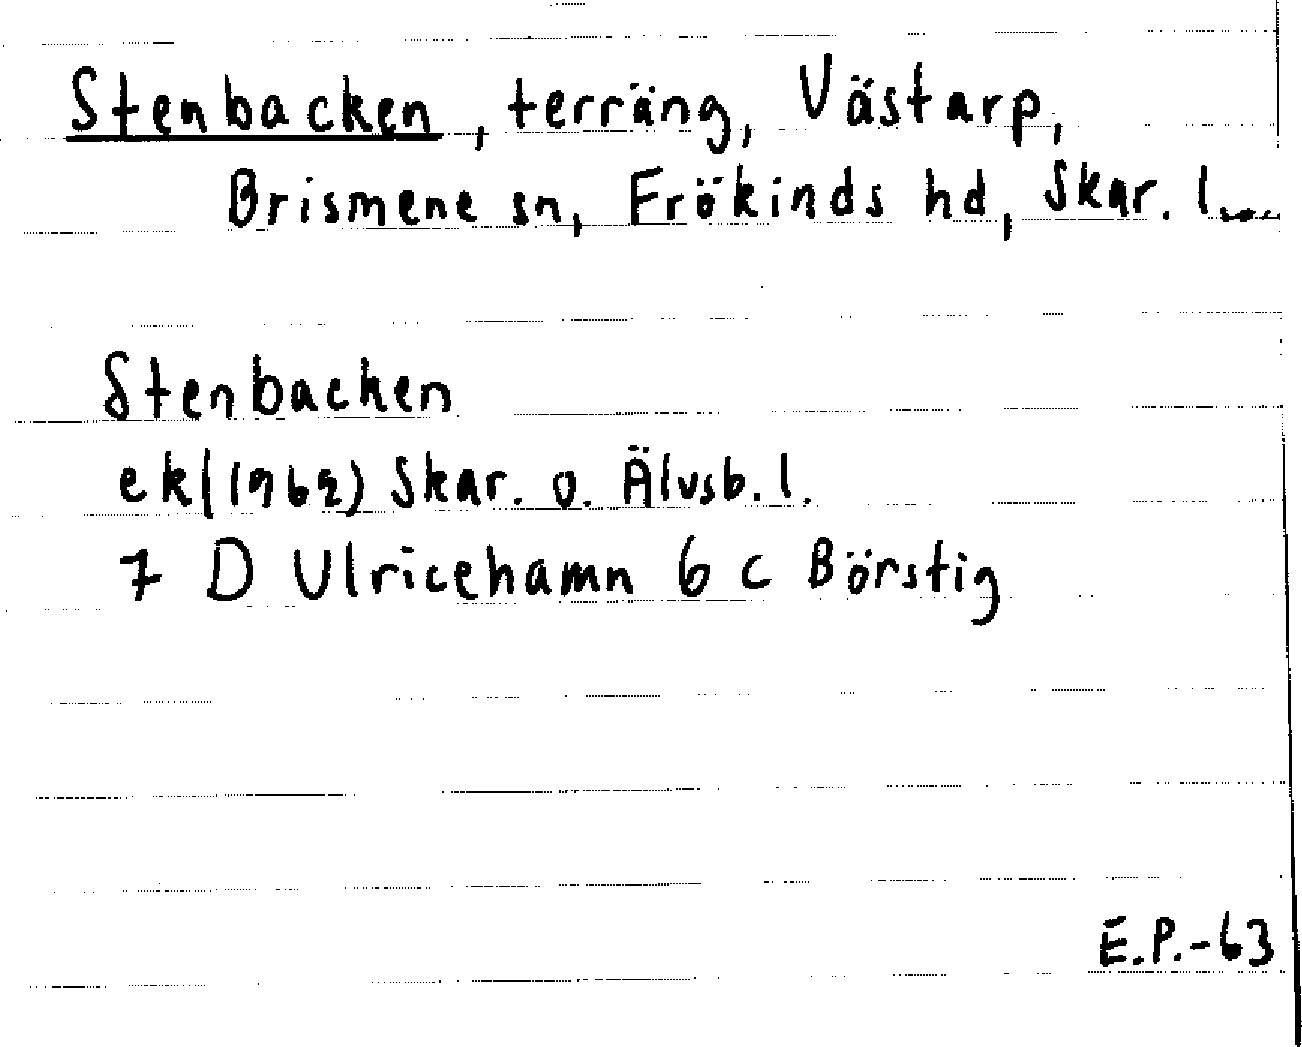 Stenbacken, terräng, Västarp,
Brismene sn, Frökinds hd, Skar. l.
Stenbacken
ek (1962) Skar. o. Älvsb. l.
7 D Ulricehamn 6 c Börstig
E.P.-63